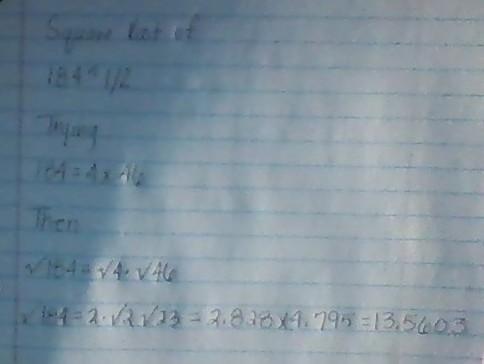 Square Root of
184^1/2
Trying
184 = 4 x 46
Then
√184 = √4 · √46
√184 = 2 · √2 √23 = 2.828 x 4.795 = 13.5603